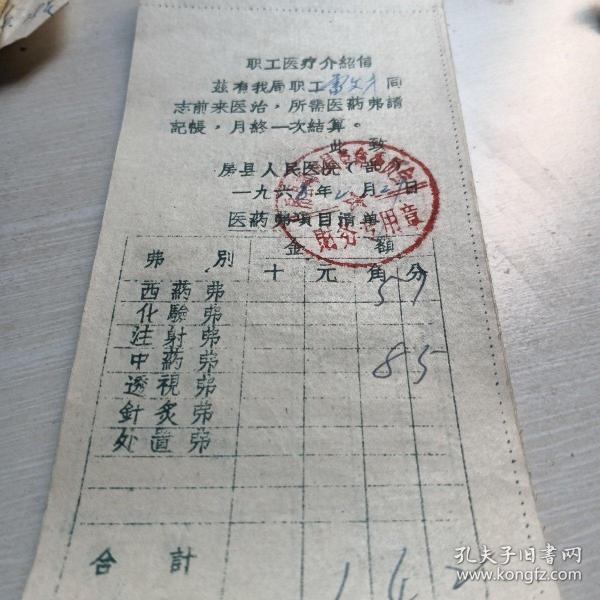 职工医疗介紹信
茲有我局职工 同
志前来医治，所需医葯弗請
記帳，月終一次結算。
此致
房县人民医院（部）
一九六 年 月 日
医葯弗項目清单
財务专用章
弗別 金額
十 元 角 分
西葯弗 5 7
化驗弗
注射弗
中葯弗 8 5
透視弗
針炙弗
处置弗
合計 1 4 2
孔夫子旧书网
www.kongfz.com